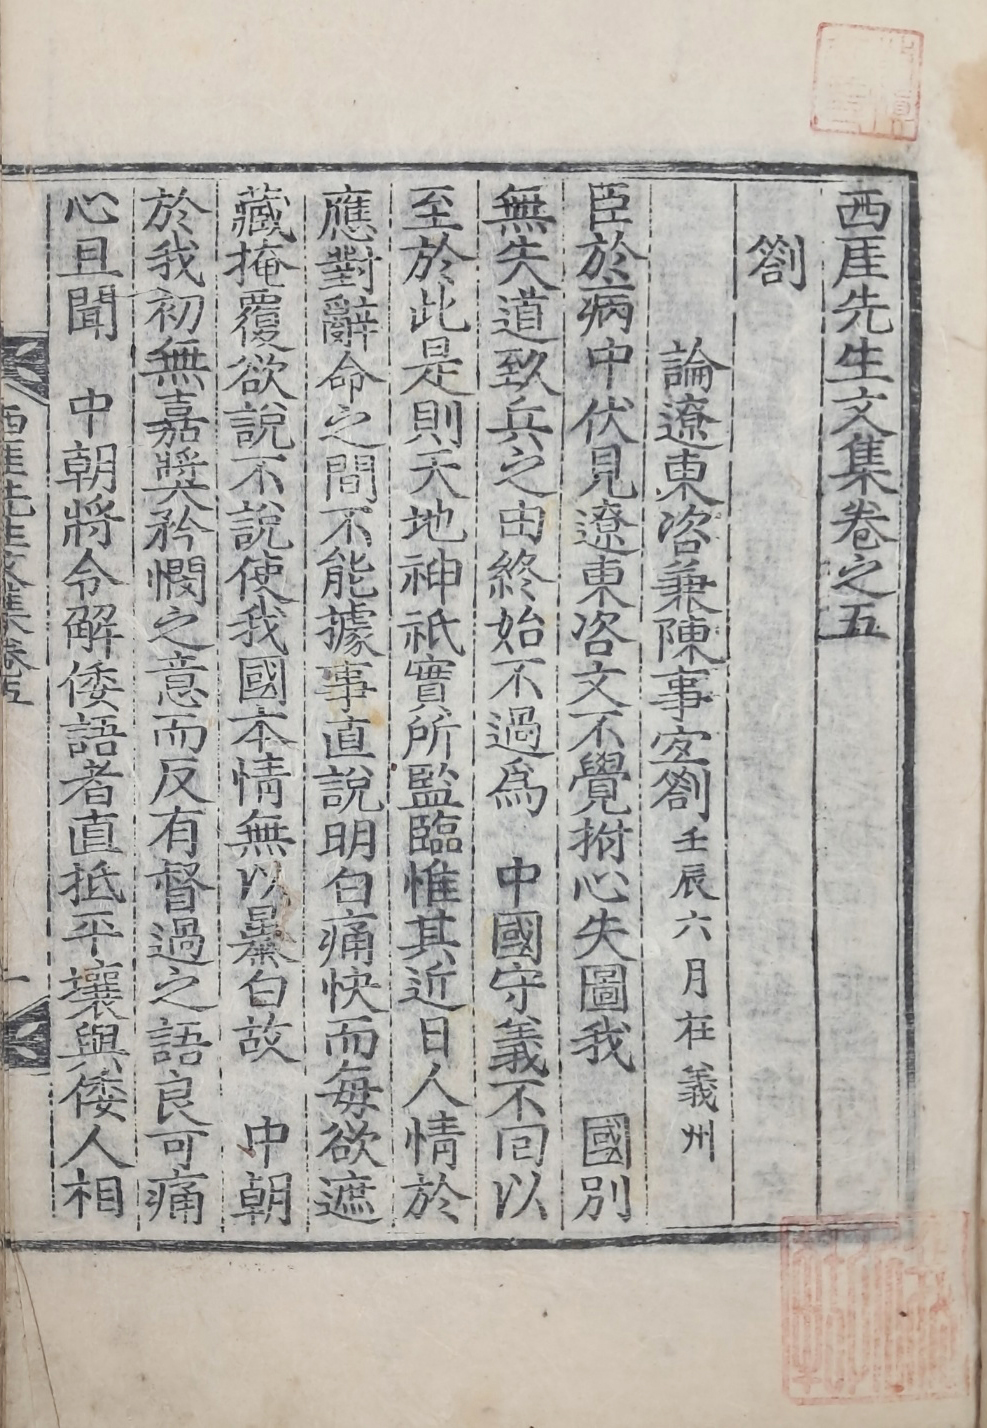 西厓先生文集卷之五
劄
論遼東咨兼陳事宜劄 壬辰六月在義州
臣於病中伏見遼東咨文不覺拊心失圖我 國別
無失道致兵之由終始不過爲 中國守義不回以
至於此是則天地神祇實所監臨惟其近日人情於
應對辭命之間不能據事直說明白痛快而每欲遮
藏掩覆欲說不說使我國本情無以暴白故 中朝
於我初無嘉奬矜憫之意而反有督過之語良可痛
心且聞 中朝將令解倭語者直抵平壤與倭人相
西厓先生文集卷五
一